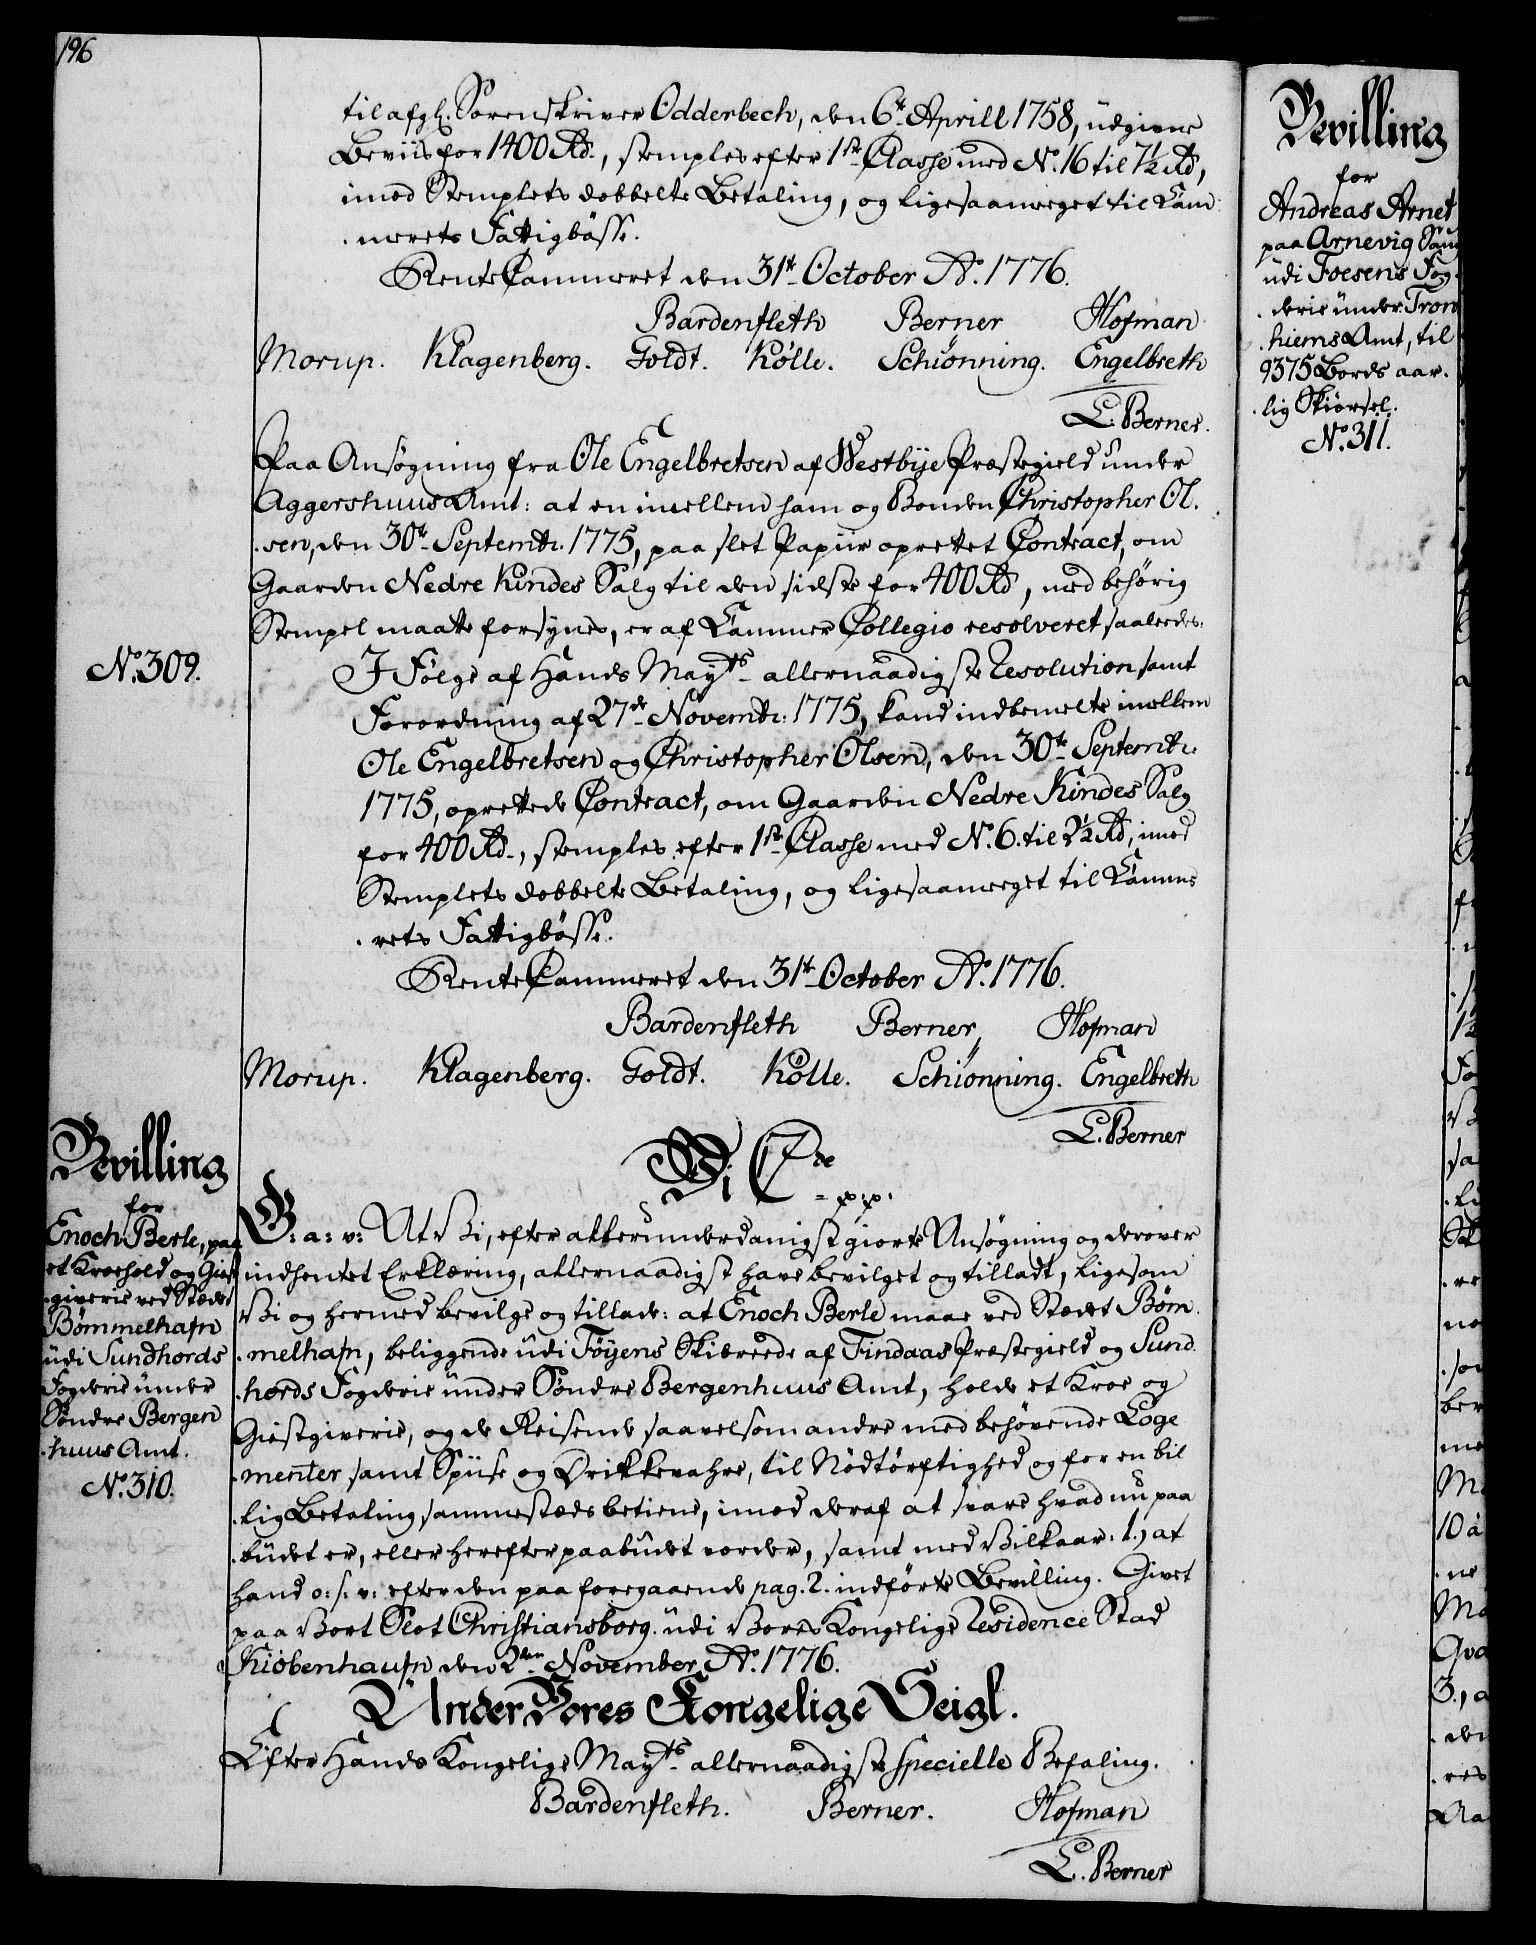 196
til afgl. Sorenskriver Odderbech, den 6te Aprill 1758, udgivne
Beviis for 1400 Rd., stemples efter 1ste Classe med No. 16 til 7½ Rd,
imod Stemplets dobbelte Betaling, og ligesaameget til Cam-
merets Fattigbösse.
RenteCammeret den 31te October Ao. 1776.
Bardenfleth Berner Hofman
Morup. Klagenberg. Goldt. Kölle. Schiönning. Engelbreth
C. Berner.
Paa Ansögning fra Ole Engelbretsen af Westbÿe Præstegield under
Aggershuus Amt: at en imellem ham og Bonden Christopher Ol-
sen, den 30te Septembr. 1775, paa slet Papiir oprettet Contract, om
Gaarden Nedre Kindes Salg til den sidste for 400 Rd, med behörig
Stempel maatte forsynes, er af Cammer Collegio resolveret saaledes:
No. 309.
I Fölge af Hands Mayts allernaadigste Resolution samt
Forordning af 27de Novembr. 1775, kand indbemelte imellem
Ole Engelbretsen og Christopher Olsen, den 30te Septembr.
1775, oprettede Contract, om Gaarden Nedre Kindes Salg
for 400 Rd., stemples efter 1ste Classe med No. 6. til 2½ Rd, imod
Stemplets dobbelte Betaling, og ligesaameget til Camme-
rets Fattigbösse.
RenteCammeret den 31te October Ao. 1776.
Bardenfleth Berner Hofman
Morup. Klagenberg. Goldt. Kölle. Schiönning. Engelbreth
C. Berner
Bevilling
for
Enoch Berle, paa
et Kroehold og Giest-
giverie ved Stædet
Bömmelhafn
udi Sundhords
Fogderie under
Söndre Bergen-
huus Amt.
No. 310.
Vi C 7de p.p.
G: a: v: At Vi, efter allerunderdanigst giorte Ansögning og derover
indhentet Erklæring, allernaadigst have bevilget og tilladt, ligesom
Vi og hermed bevilge og tillade: at Enoch Berle maae ved Stædet Böm-
melhafn, beliggende udi Föÿens Skibreede af Findaas Præstegield og Sund-
hords Fogderie under Söndre Bergenhuus Amt, holde et Kroe og
Giestgiverie, og de Reisende saavelsom andre med behövende Loge-
menter samt Spiise og Drikkevahre, til Nödtörftighed og for en bil-
lig Betaling sammestæds betiene, imod deraf at svare hvad nu paa-
budet er, eller herefter paabudet vorder, samt med Vilkaar: 1.) at
hand o: s: v: efter den paa foregaaende pag. 2. indförte Bevilling. Givet
paa Vort Slot Christiansborg udi Vores Kongelige Residence Stad
Kiöbenhaufn den 2den November Ao. 1776.
Under Vores Kongelige Seigl.
Efter Hands Kongelige Mayts allernaadigste specielle Befaling.
Bardenfleth. Berner. Hofman
C. Berner
Bevilling
for
Andreas Arnet
paa Arnevig Saug
udi Foesens Fog-
derie under Tron-
hiems Amt, til
9375 Bords aar-
lig Skiörsel.
No. 311.